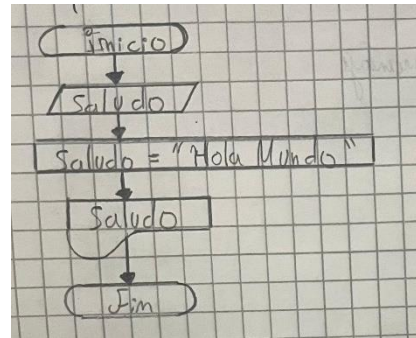 Inicio
Saludo
Saludo = "Hola Mundo"
Saludo
Fin